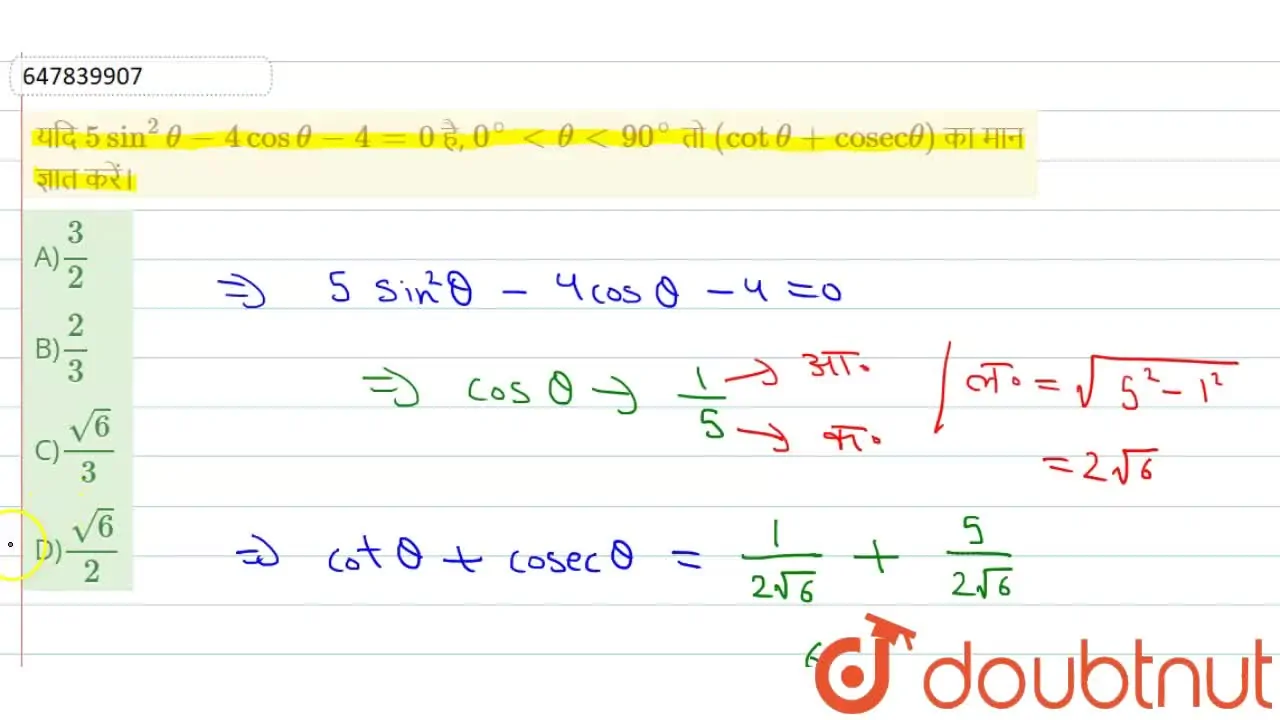 647839907
यदि 5 sin² θ − 4 cos θ − 4 = 0 है, 0° < θ < 90° तो (cot θ + cosecθ) का मान
ज्ञात करें।
A) 3/2
B) 2/3
C) √6/3
D) √6/2
⇒ 5 sin²θ − 4cosθ − 4 = 0
⇒ cosθ → 1/5 → आ॰
→ क॰
ल॰ = √5² − 1²
= 2√6
⇒ cotθ + cosecθ = 1/2√6 + 5/2√6
doubtnut